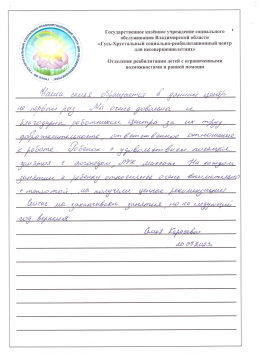 Государственное казённое учреждение социального
обслуживания Владимирской области
«Гусь-Хрустальный социально-реабилитационный центр
для несовершеннолетних»
Отделение реабилитации детей с ограниченными
возможностями и ранней помощи
Наша семья обращается в данный центр
не первый раз. Мы очень довольны и
благодарны работникам Центра за их труд,
доброжелательность, ответственное отношение
к работе. Ребенок с удовольствием посещает
занятия с логопедом, ЛФК, массаж. На каждом
занятии к ребенку относились очень внимательно
с теплотой, мы получили ценные рекомендации
Сейчас мы заканчиваем занятия, но на следующий
год вернемся
Семья
20.09.2023